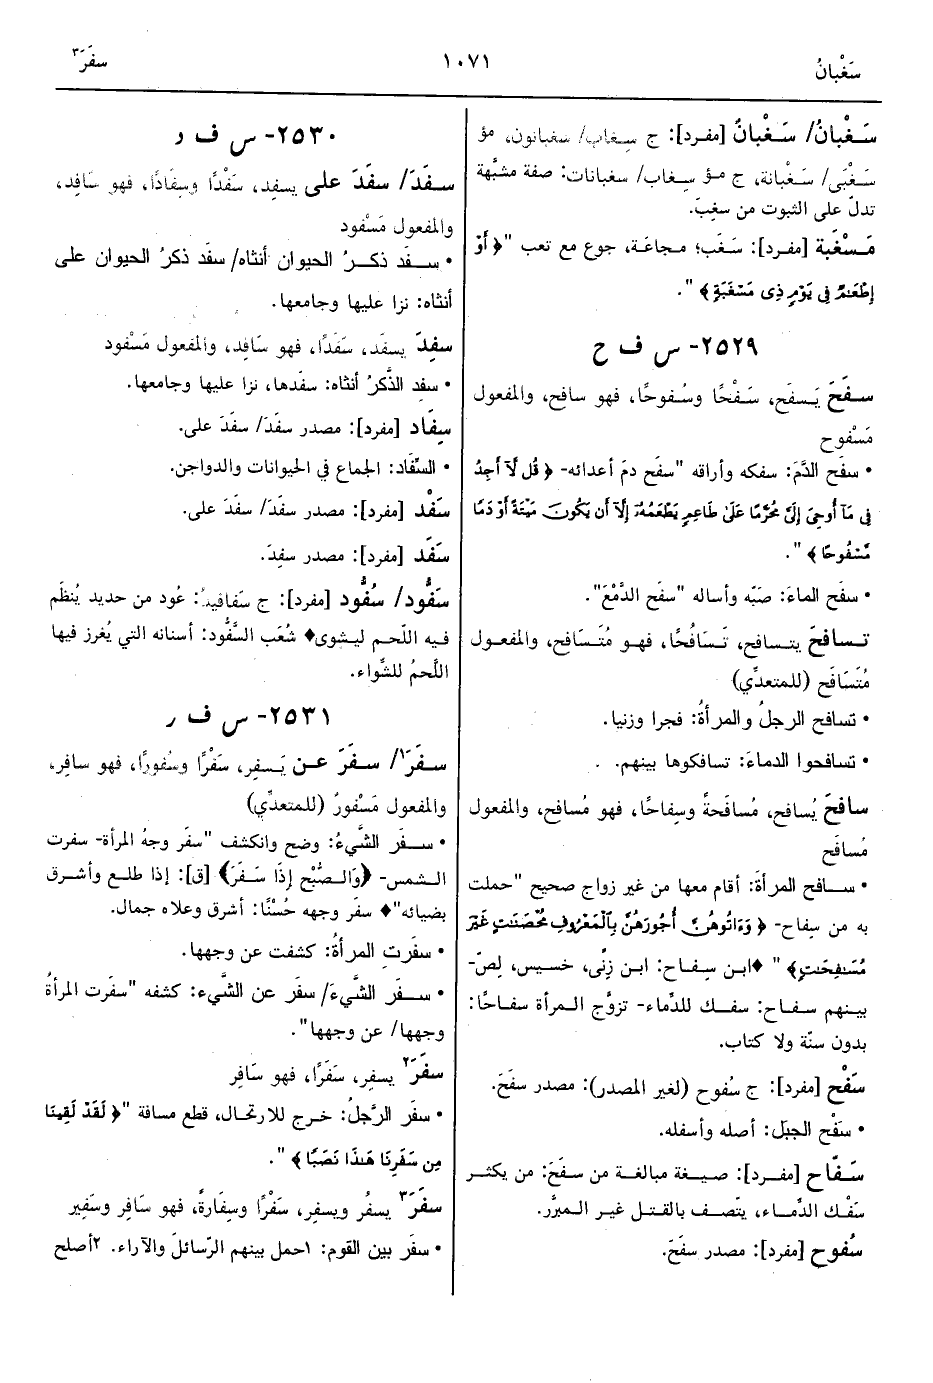 سَغْبانُ
١٠٧١
سفَرَ٣
سَغْبانُ/ سَغْبانٌ [مفرد]: ج سِغاب/ سَغبانون، مؤ
سَغْبَى/ سَغْبانة، ج مؤ سِغاب/ سغبانات: صفة مشبَّهة
تدلّ على الثبوت من سغِبَ.
مَسْغَبة [مفرد]: سَغَب؛ مجاعَة، جوع مع تعب "﴿أَوْ
إِطْعَمٌ فِي يَوْمٍ ذِي مَسْغَبَةٍ﴾".
٢٥٢٩- س ف ح
سفَحَ يَسفَح، سَفْحًا وسُفوحًا، فهو سافِح، والمفعول
مَسْفوح
• سفَح الدَّمَ: سفكه وأراقه "سفَح دمَ أعدائه- ﴿قُل لَّآ أَجِدُ
فِي مَآ أُوحِيَ إِلَيَّ مُحَرَّمًا عَلَىٰ طَاعِمٍ يَطْعَمُهُۥٓ إِلَّآ أَن يَكُونَ مَيْتَةً أَوْ دَمًا
مَّسْفُوحًا﴾".
• سفَح الماءَ: صَبّه وأساله "سفَح الدَّمْعَ".
تسافحَ يتسافح، تَسَافُحًا، فهو مُتَسَافِح، والمفعول
مُتَسَافَح (للمتعدِّي)
• تسافح الرجلُ والمرأةُ: فجرا وزنيا.
• تسافحوا الدماءَ: تسافكوها بينهم.
سافحَ يُسافح، مُسافَحةً وسِفاحًا، فهو مُسافِح، والمفعول
مُسافَح
• سافح المرأةَ: أقام معها من غير زواج صحيح "حملت
به من سِفاح- ﴿وَءَاتُوهُنَّ أُجُورَهُنَّ بِالْمَعْرُوفِ مُحْصَنَتٍ غَيْرَ
مُسَفِحَتٍ﴾" ♦ابن سِفاح: ابن زِنًى، خسيس، لِصّ-
بينهم سفاح: سفك للدِّماء- تزوَّج المرأة سفاحًا:
بدون سنّة ولا كتاب.
سَفْح [مفرد]: ج سُفوح (لغير المصدر): مصدر سفَحَ.
• سَفْح الجبَل: أصله وأسفله.
سَفّاح [مفرد]: صيغة مبالغة من سفَحَ: من يكثر
سَفْك الدِّماء، يتَّصف بالقتل غير المبرَّر.
سُفوح [مفرد]: مصدر سفَحَ.
٢٥٣٠- س ف د
سفَدَ/ سفَدَ على يسفِد، سَفْدًا وسِفَادًا، فهو سَافِد،
والمفعول مَسْفود
• سفَد ذكرُ الحيوان أنثاه/ سفَد ذكرُ الحيوان على
أنثاه: نزا عليها وجامعها.
سفِدَ يسفَد، سَفَدًا، فهو سَافِد، والمفعول مَسْفود
• سفِد الذَّكرُ أنثاه: سفَدها، نزا عليها وجامعها.
سِفاد [مفرد]: مصدر سفَدَ/ سفَدَ على.
• السِّفَاد: الجماع في الحيوانات والدواجن.
سَفْد [مفرد]: مصدر سفَدَ/ سفَدَ على.
سَفَد [مفرد]: مصدر سفِدَ.
سَفُّود/ سُفُّود [مفرد]: ج سَفافيدُ: عُود من حديد يُنظَم
فيه اللّحم ليشوى♦ شُعَب السَّفُّود: أسنانه التي يُغرز فيها
اللَّحمُ للشِّواء.
٢٥٣١- س ف ر
سفَرَ١/ سفَرَ عن يَسفِر، سَفْرًا وسُفورًا، فهو سافِر،
والمفعول مَسْفورٌ (للمتعدِّي)
• سفَر الشَّيءُ: وضح وانكشف "سفَر وجهُ المرأة- سفرت
الشمس- ﴿وَالصُّبْحِ إِذَا سَفَرَ﴾ [ق]: إذا طلع وأشرق
بضيائه"♦ سفَر وجهه حُسْنًا: أشرق وعلاه جمال.
• سفَرتِ المرأةُ: كشفت عن وجهها.
• سفَر الشَّيءَ/ سفَر عن الشَّيء: كشفه "سفَرت المرأةُ
وجهها/ عن وجهها".
سفَرَ٢ يسفِر، سَفَرًا، فهو سَافِر
• سفَر الرَّجلُ: خرج للارتحال، قطع مسافة "﴿لَقَدْ لَقِينَا
مِن سَفَرِنَا هَذَا نَصَبًا﴾".
سفَرَ٣ يسفُر ويسفِر، سَفْرًا وسِفارةً، فهو سَافِر وسَفِير
• سفَر بين القوم: ١حمل بينهم الرّسائلَ والآراء. ٢أصلح